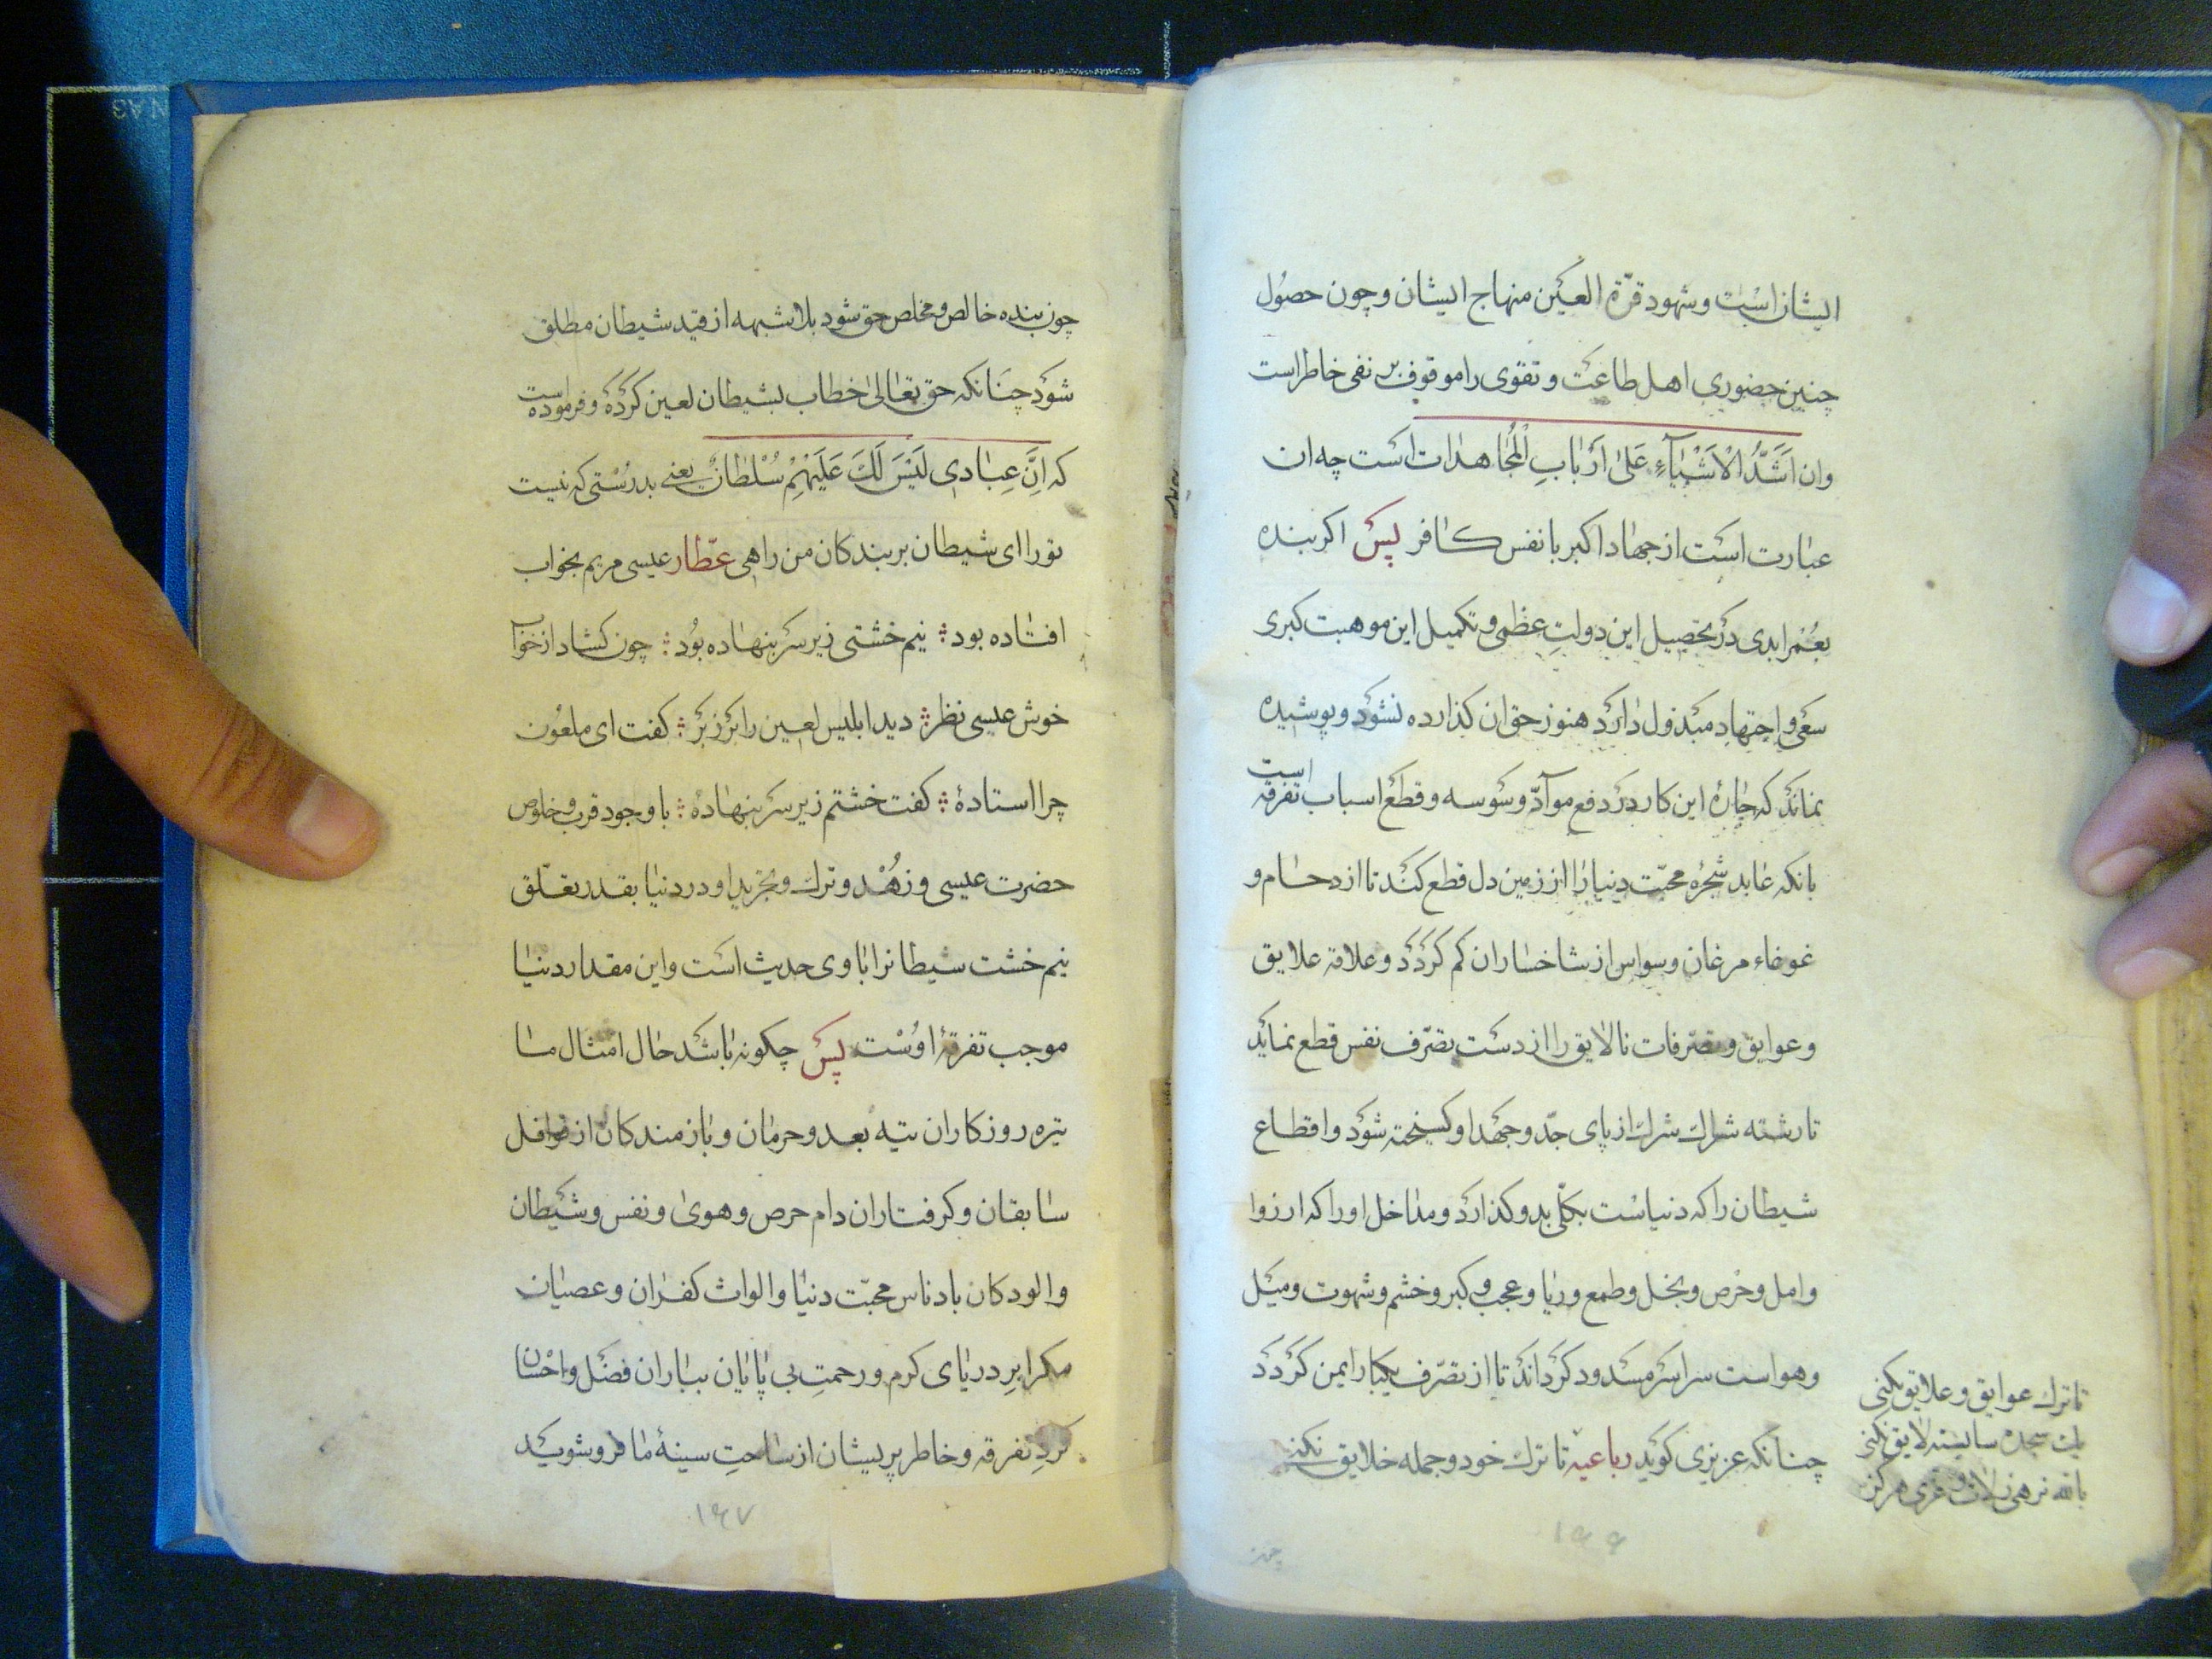 ایشان است و شهود قرّة العین منهاج ایشان و چون حصول
چنین حضوری اهل طاعت و تقوی را موقوف بر نفی خاطر است
وان اَشَدُّ الْاَشْیَآءِ عَلیٰ اَرْبابِ الْمُجاهدات است چه ان
عبارت است از جهاد اکبر با نفس کافر پس اکر بنده
بعُمْر ابدی در تحصیل این دولتِ عظمی و تکمیل این موهبت کبری
سعی و اجتهاد مبذول دارد هنوز حق ان کذارده نشود و پوشیده
نماند که چارهٔ این کار در دفع موآدّ وسوسه و قطع اسباب تفرقه است
بانکه عابد شجرهٔ محبّت دنیا را از زمین دل قطع کند تا ازدحام و
غوغاء مرغان وسواس از شاخساران کم کردد و علاقه علایق
و عوایق و تصرّفات نالایق را از دست تصرّف نفس قطع نماید
تا رشته شراك شرك از پای جدّ و جهد او کسیخته شود و اقطاع
شیطان را که دنیاست بکلّی بدو کذارد و مداخل او را که ارزوا
و امل و حرص و بخل و طمع و ریا و عجب و کبر و خشم و شهوت و میل
و هواست سراسر مسدود کرداند تا از تصرّف یکبار ایمن کردد
چنانکه عزیزی کوید رباعیه تا ترك خود و جمله خلایق نکنی
تا ترك عوایق و علایق نکنی
یك سجده شایسته لایق نکنی
بالله نرهی ز لات و عزی هرکز
چون
۱۶۶
چون بنده خالص و مخلص حق شود بلا شبهه از قید شیطان مطلق
شود چنانکه حق تعالی خطاب بشیطان لعین کرده و فرموده است
که اِنَّ عِبادی لَیْسَ لَكَ عَلَیْهِمْ سُلْطانٌ یعنی بدرستی که نیست
تو را ای شیطان بر بندکان من راهی عطّار عیسی مریم بخواب
افتاده بود ؛ نیم خشتی زیر سر بنهاده بود ؛ چون کشاد از خواب
خوش عیسی نظر ؛ دید ابلیس لعین را بر زبر ؛ کفت ای ملعون
چرا استادهٔ ؛ کفت خشتم زیر سر بنهادهٔ ؛ با وجود قرب و خلوص
حضرت عیسی و زهد و ترك و تجرید او در دنیا بقدر تعلّق
نیم خشت شیطانرا با وی حدیث است و این مقدار دنیا
موجب تفرقهٔ اوست پس چکونه باشد حال امثال ما
تیره روزکاران تیه بعد و حرمان و بازمندکان از قوافل
سابقان و کرفتاران دام حرص و هوی و نفس و شیطان
و الودکان بادناس محبّت دنیا و الواث کفران و عصیان
مکر ابرِ دریای کرم و رحمتِ بی پایان بباران فضل و احسان
کردِ تفرقه و خاطر پریشان از ساحتِ سینهٔ ما فرو شوید
۱۶۷